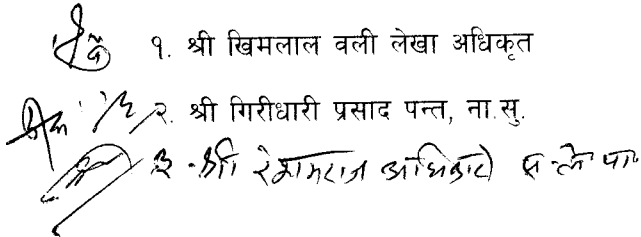 १. श्री खिमलाल वली लेखा अधिकृत
२. श्री गिरीधारी प्रसाद पन्त, ना.सु.
३ - श्री रेशमराज अधिकारी स.ले.पा